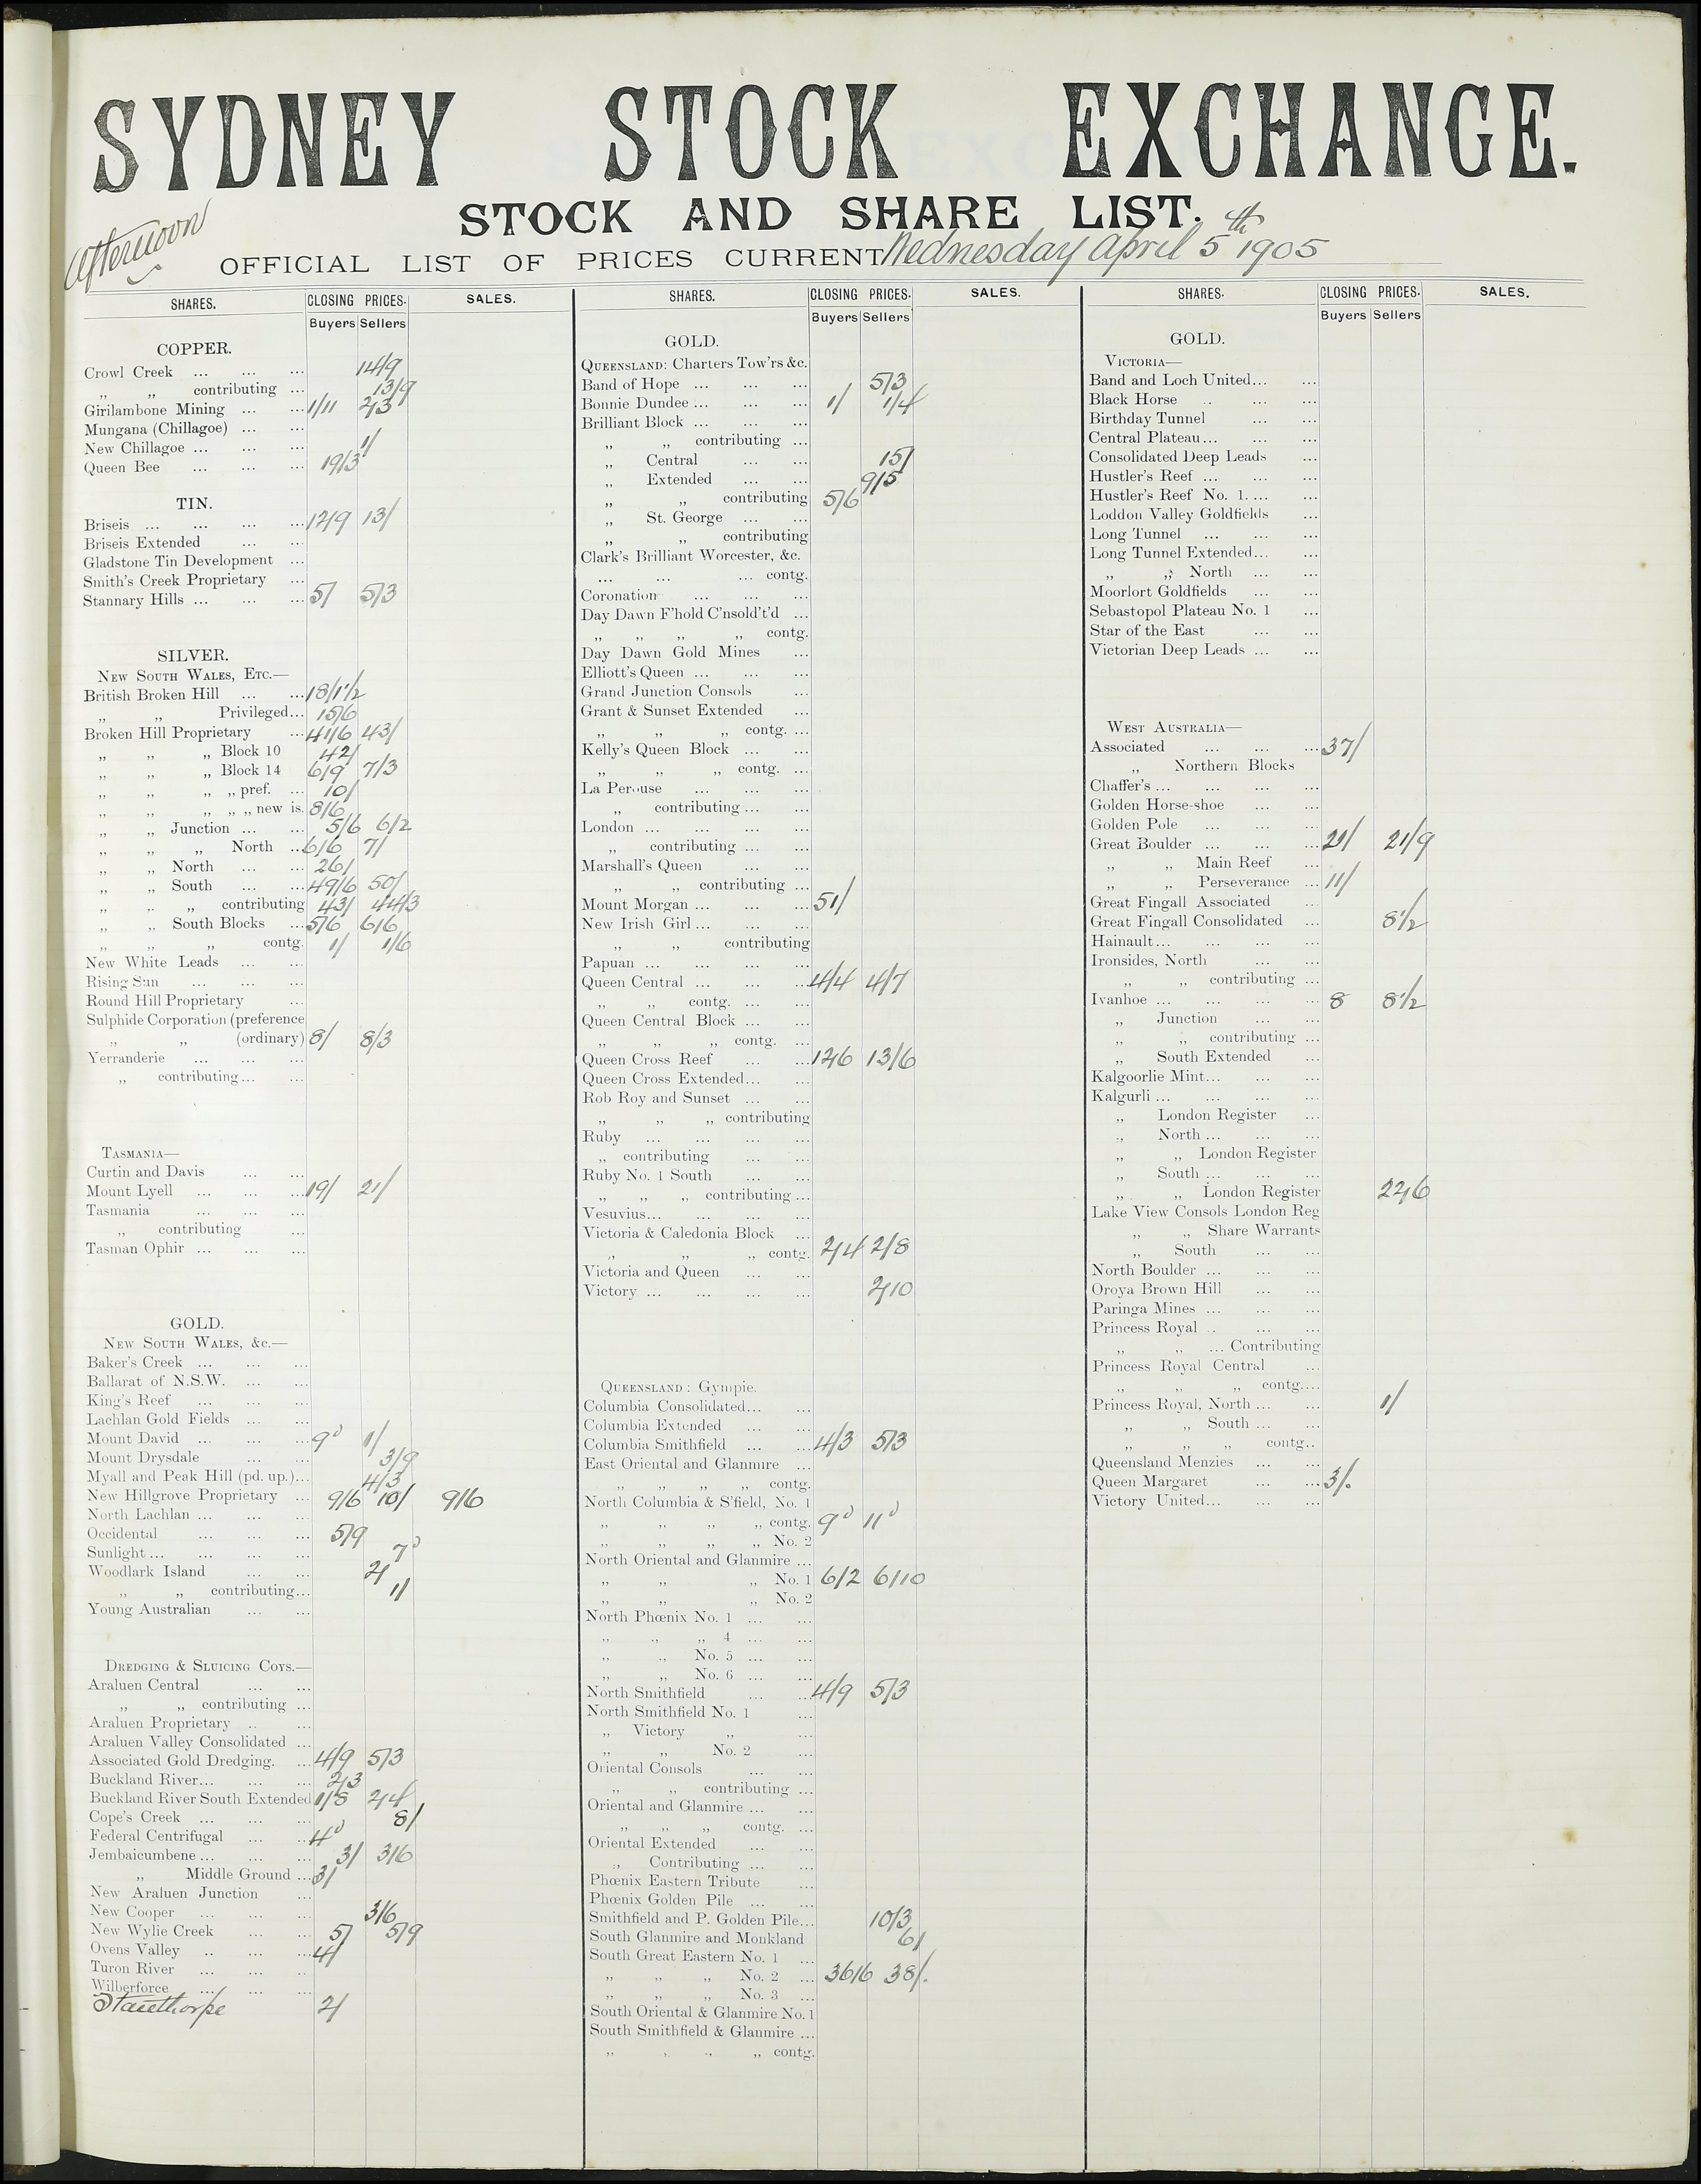 SYDNEY STOCK EXCHANGE.
STOCK AND SHARE LIST.
Afternoon
OFFICIAL LIST OF PRICES CURRENT Wednesday April 5th 1905
SHARES. CLOSING PRICES. SALES.
Buyers Sellers
COPPER.
Crowl Creek ... ... ... 14/9
„ „ contributing ... 13/9
Girilambone Mining ... ... 1/11 2/3
Mungana (Chillagoe) ... ...
New Chillagoe ... ... ... 1/
Queen Bee ... ... ... 19/3
TIN.
Briseis ... ... ... ... 12/9 13/
Briseis Extended ... ...
Gladstone Tin Development ...
Smith's Creek Proprietary ...
Stannary Hills ... ... ... 5/ 5/3
SILVER.
NEW SOUTH WALES, ETC.—
British Broken Hill ... ... 8/1½
„ „ Privileged... 15/6
Broken Hill Proprietary ... 41/6 43/
„ „ „ Block 10 42/
„ „ „ Block 14 6/9 7/3
„ „ „ „ pref. ... 10/
„ „ „ „ „ new is. 8/6
„ „ Junction ... ... 5/6 6/2
„ „ „ North ... 6/6 7/
„ „ North ... ... 26/
„ „ South ... ... 49/6 50/
„ „ „ contributing 43/ 44/3
„ „ South Blocks ... 5/6 6/6
„ „ „ contg. 1/ 1/6
New White Leads ... ...
Rising Sun ... ... ...
Round Hill Proprietary ...
Sulphide Corporation (preference
„ „ (ordinary) 8/ 8/3
Yerranderie ... ... ...
„ contributing ... ...
TASMANIA—
Curtin and Davis ... ...
Mount Lyell ... ... ... 19/ 21/
Tasmania ... ... ...
„ contributing ...
Tasman Ophir ... ... ...
GOLD.
NEW SOUTH WALES, &c.—
Baker's Creek ... ... ...
Ballarat of N.S.W. ... ...
King's Reef ... ... ...
Lachlan Gold Fields ... ...
Mount David ... ... ... 9d 1/
Mount Drysdale ... ... 3/9
Myall and Peak Hill (pd. up.)... 4/3
New Hillgrove Proprietary ... 9/6 10/ 9/6
North Lachlan ... ... ...
Occidental ... ... ... 5/9
Sunlight ... ... ... ... 7d
Woodlark Island ... ... 2/
„ „ contributing... 1/
Young Australian ... ...
DREDGING & SLUICING COYS.—
Araluen Central ... ...
„ „ contributing ...
Araluen Proprietary .. ...
Araluen Valley Consolidated ...
Associated Gold Dredging. ... 4/9 5/3
Buckland River... ... ... 2/3
Buckland River South Extended 1/8 2/4
Cope's Creek ... ... ... 8/
Federal Centrifugal ... .. 4d
Jembaicumbene ... ... ... 3/ 3/6
„ Middle Ground ... 3/
New Araluen Junction ...
New Cooper ... ... ... 3/6
New Wylie Creek ... ... 5/ 5/9
Ovens Valley .. ... ... 4/
Turon River ... ... ..
Wilberforce ... ... ...
Stanthorpe 2/
SHARES. CLOSING PRICES. SALES.
Buyers Sellers
GOLD.
QUEENSLAND: Charters Tow'rs &c.
Band of Hope ... ... ... 5/3
Bonnie Dundee ... ... ... 1/ 1/4
Brilliant Block ... ... ...
„ „ contributing ...
„ Central ... ... 15/
„ Extended ... ... 9/5
„ „ contributing 5/6
„ St. George ... ...
„ „ contributing
Clark's Brilliant Worcester, &c.
... ... ... contg.
Coronation ... ... ...
Day Dawn F'hold C'nsold't'd ...
„ „ „ „ contg.
Day Dawn Gold Mines ...
Elliott's Queen ... ... ...
Grand Junction Consols ...
Grant & Sunset Extended ...
„ „ „ contg. ...
Kelly's Queen Block ... ...
„ „ „ contg. ...
La Perouse ... ... ...
„ contributing ... ...
London ... ... ... ...
„ contributing ... ...
Marshall's Queen ... ...
„ „ contributing ...
Mount Morgan ... ... ... 51/
New Irish Girl ... ... ...
„ „ contributing
Papuan ... ... ... ...
Queen Central ... ... ... 4/4 4/7
„ „ contg. ... ...
Queen Central Block ... ...
„ „ „ contg. ...
Queen Cross Reef ... ... 12/6 13/6
Queen Cross Extended... ...
Rob Roy and Sunset ... ...
„ „ „ contributing
Ruby ... ... ... ...
„ contributing ... ...
Ruby No. 1 South ... ...
„ „ „ contributing ...
Vesuvius... ... ... ...
Victoria & Caledonia Block ...
„ „ „ contg. 2/4 2/8
Victoria and Queen ... ...
Victory ... ... ... ... 2/10
QUEENSLAND: Gympie.
Columbia Consolidated... ...
Columbia Extended ... ...
Columbia Smithfield ... ... 4/3 5/3
East Oriental and Glanmire ...
„ „ „ „ contg.
North Columbia & S'field, No. 1
„ „ „ „ contg. 9d 11d
„ „ „ „ No. 2
North Oriental and Glanmire ...
„ „ „ No. 1 6/2 6/10
„ „ „ No. 2
North Phœnix No. 1 ... ...
„ „ „ 4 ... ...
„ „ No. 5 ... ...
„ „ No. 6 ... ...
North Smithfield ... ... 4/9 5/3
North Smithfield No. 1 ...
„ Victory „ ...
„ „ No. 2 ...
Oriental Consols ... ...
„ „ contributing ...
Oriental and Glanmire ... ...
„ „ „ contg. ...
Oriental Extended ... ...
„ Contributing ... ...
Phœnix Eastern Tribute ...
Phœnix Golden Pile ... ...
Smithfield and P. Golden Pile... 10/3
South Glanmire and Monkland 6/
South Great Eastern No. 1 ...
„ „ „ No. 2 ... 36/6 38/.
„ „ „ No. 3 ...
South Oriental & Glanmire No. 1
South Smithfield & Glanmire ...
„ „ „ „ contg.
SHARES. CLOSING PRICES. SALES.
Buyers Sellers
GOLD.
VICTORIA—
Band and Loch United... ...
Black Horse .. ... ...
Birthday Tunnel ... ...
Central Plateau ... ... ...
Consolidated Deep Leads ...
Hustler's Reef ... ... ...
Hustler's Reef No. 1. ... ...
Loddon Valley Goldfields ...
Long Tunnel ... ... ...
Long Tunnel Extended... ...
„ „ North ... ...
Moorlort Goldfields ... ...
Sebastopol Plateau No. 1 ...
Star of the East ... ...
Victorian Deep Leads ... ...
WEST AUSTRALIA—
Associated ... ... ... 37/
„ Northern Blocks
Chaffer's ... ... ... ...
Golden Horse-shoe ... ...
Golden Pole ... ... ...
Great Boulder ... ... ... 21/ 21/9
„ „ Main Reef ...
„ „ Perseverance ... 11/
Great Fingall Associated ...
Great Fingall Consolidated ... 8½
Hainault ... ... ... ...
Ironsides, North ... ...
„ „ contributing ...
Ivanhoe ... ... ... ... 8 8½
„ Junction ... ...
„ „ contributing ...
„ South Extended ...
Kalgoorlie Mint... ... ...
Kalgurli ... ... ... ...
„ London Register ...
„ North ... ... ...
„ „ London Register
„ South ... ... ...
„ „ London Register 22/6
Lake View Consols London Reg
„ „ Share Warrants
„ South ... ...
North Boulder ... ... ...
Oroya Brown Hill ... ...
Paringa Mines ... ... ...
Princess Royal .. ... ...
„ „ ... Contributing
Princess Royal Central ...
„ „ „ contg....
Princess Royal, North ... ... 1/
„ „ South ... ...
„ „ „ contg..
Queensland Menzies ... ...
Queen Margaret ... ... 3/.
Victory United... ... ...